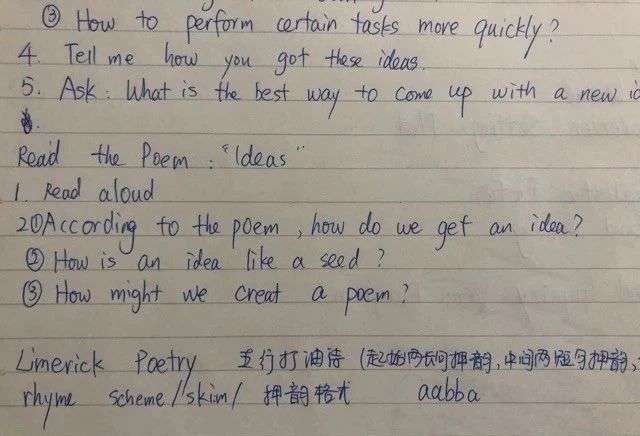 ③ How to perform certain tasks more quickly?
4. Tell me how you got these ideas.
5. Ask: What is the best way to come up with a new
Read the Poem: "Ideas"
1. Read aloud
2①According to the poem, how do we get an idea?
② How is an idea like a seed?
③ How might we creat a poem?
Limerick Poetry 五行打油诗 (起始两长句押韵,中间两短句押韵,
rhyme scheme /skim/ 押韵格式 aabba